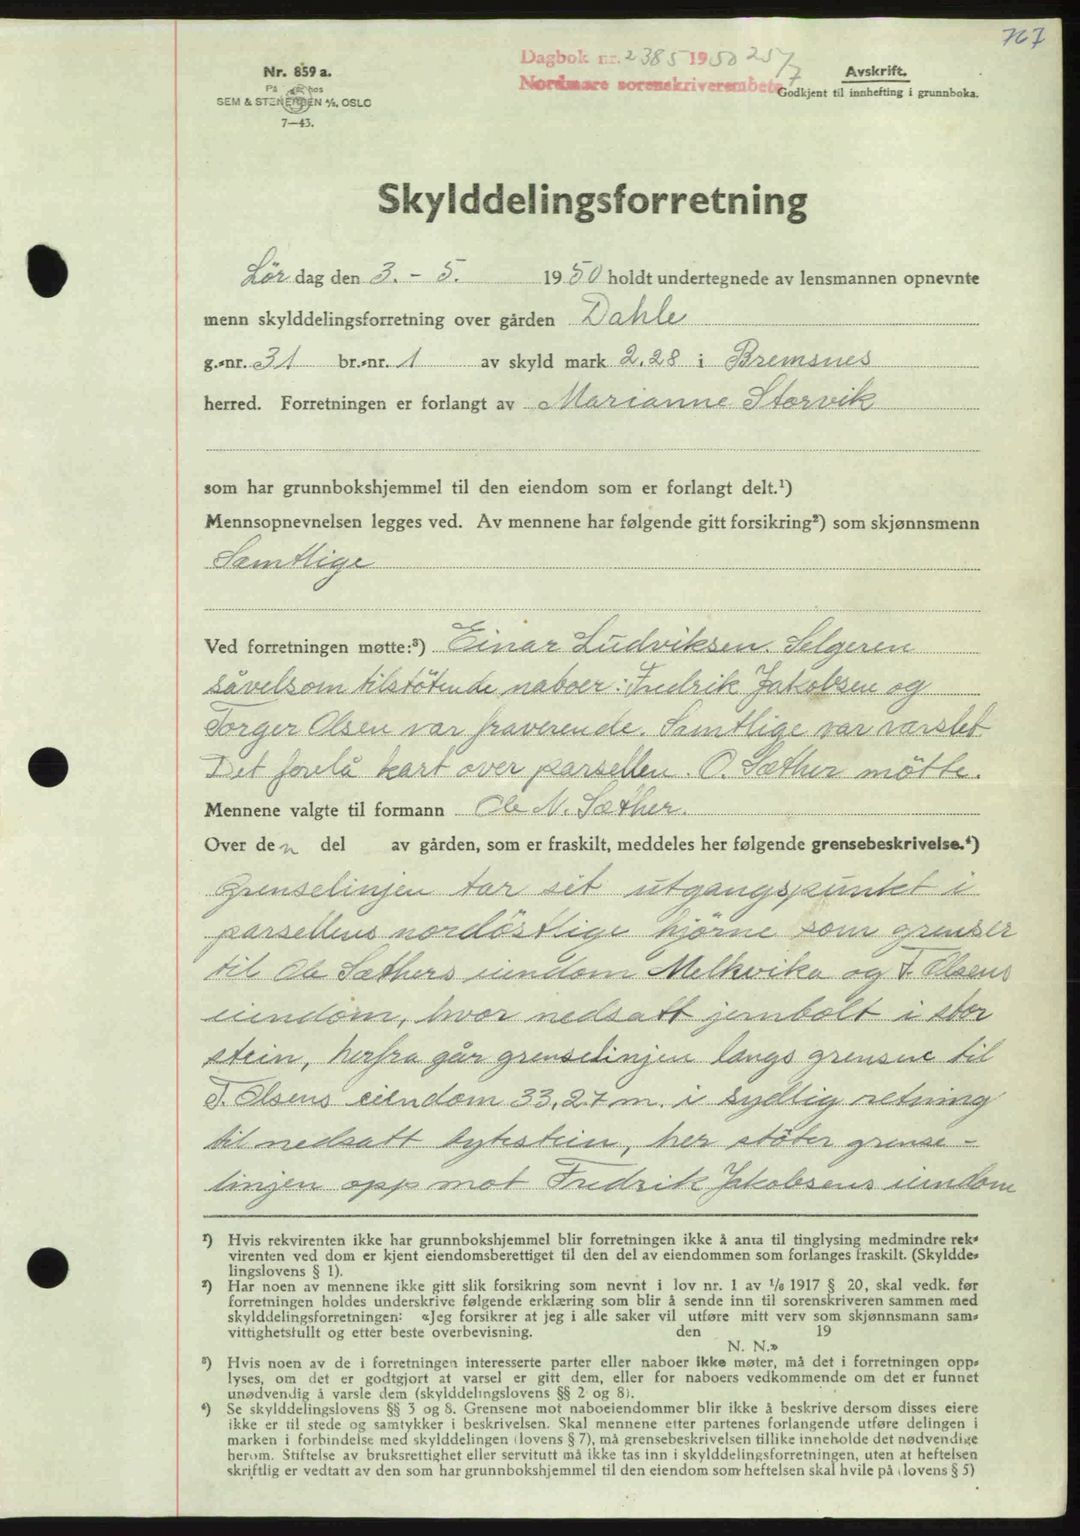 767
Dagbok nr. 2385 1950 25/7
Nordmøre sorenskriverembete
Nr. 859 a.
På hos
SEM & STENERSEN A/S, OSLO
7—43.
Avskrift.
Godkjent til innhefting i grunnboka.
Skylddelingsforretning
Lör dag den 3. - 5. 1950 holdt undertegnede av lensmannen opnevnte
menn skylddelingsforretning over gården Dahle
g.-nr. 31 br.-nr. 1 av skyld mark 2.28 i Bremsnes
herred. Forretningen er forlangt av Marianne Storvik
som har grunnbokshjemmel til den eiendom som er forlangt delt.¹)
Mennsopnevnelsen legges ved. Av mennene har følgende gitt forsikring²) som skjønnsmenn
Samtlige
Ved forretningen møtte:³) Einar Ludviksen. Selgeren
såvelsom tilstötende naboer: Fredrik Jakobsen og
Torger Olsen var fraverende. Samtlige var varslet.
Det forelå kart over parsellen. O. Sæther mötte.
Mennene valgte til formann Ole N. Sæther.
Over den del av gården, som er fraskilt, meddeles her følgende grensebeskrivelse.⁴)
Grenselinjen tar sit utgangspunkt i
parsellens nordöstlige hjörne som grenser
til Ole Sæthers eiendom Melkvika og T. Olsens
eiendom, hvor nedsatt jernbolt i stor
stein, herfra går grenselinjen langs grensene til
T. Olsens eiendom 33,27 m. i sydlig retning
til nedsatt bytestein, her stöter grense-
linjen opp mot Fredrik Jakobsens eiendom
¹) Hvis rekvirenten ikke har grunnbokshjemmel blir forretningen ikke å anta til tinglysing medmindre rek-
virenten ved dom er kjent eiendomsberettiget til den del av eiendommen som forlanges fraskilt. (Skyldde-
lingslovens § 1).
²) Har noen av mennene ikke gitt slik forsikring som nevnt i lov nr. 1 av 1/6 1917 § 20, skal vedk. før
forretningen holdes underskrive følgende erklæring som blir å sende inn til sorenskriveren sammen med
skylddelingsforretningen: «Jeg forsikrer at jeg i alle saker vil utføre mitt verv som skjønnsmann sam-
vittighetsfullt og etter beste overbevisning. den 19
N. N.»
³) Hvis noen av de i forretningen interesserte parter eller naboer ikke møter, må det i forretningen opp-
lyses, om det er godtgjort at varsel er gitt dem, eller for naboers vedkommende om det er funnet
unødvendig å varsle dem (skylddelingslovens §§ 2 og 8).
⁴) Se skylddelingslovens §§ 3 og 8. Grensene mot naboeiendommer blir ikke å beskrive dersom disses eiere
ikke er til stede og samtykker i beskrivelsen. Skal mennene etter partenes forlangende utføre delingen i
marken i forbindelse med skylddelingen (lovens § 7), må grensebeskrivelsen tillike inneholde det nødvendige
herom. Stiftelse av bruksrettighet eller servitutt må ikke tas inn i skylddelingsforretningen, uten at heftelsen
skriftlig er vedtatt av den som har grunnbokshjemmel til den eiendom som heftelsen skal hvile på (lovens § 5)